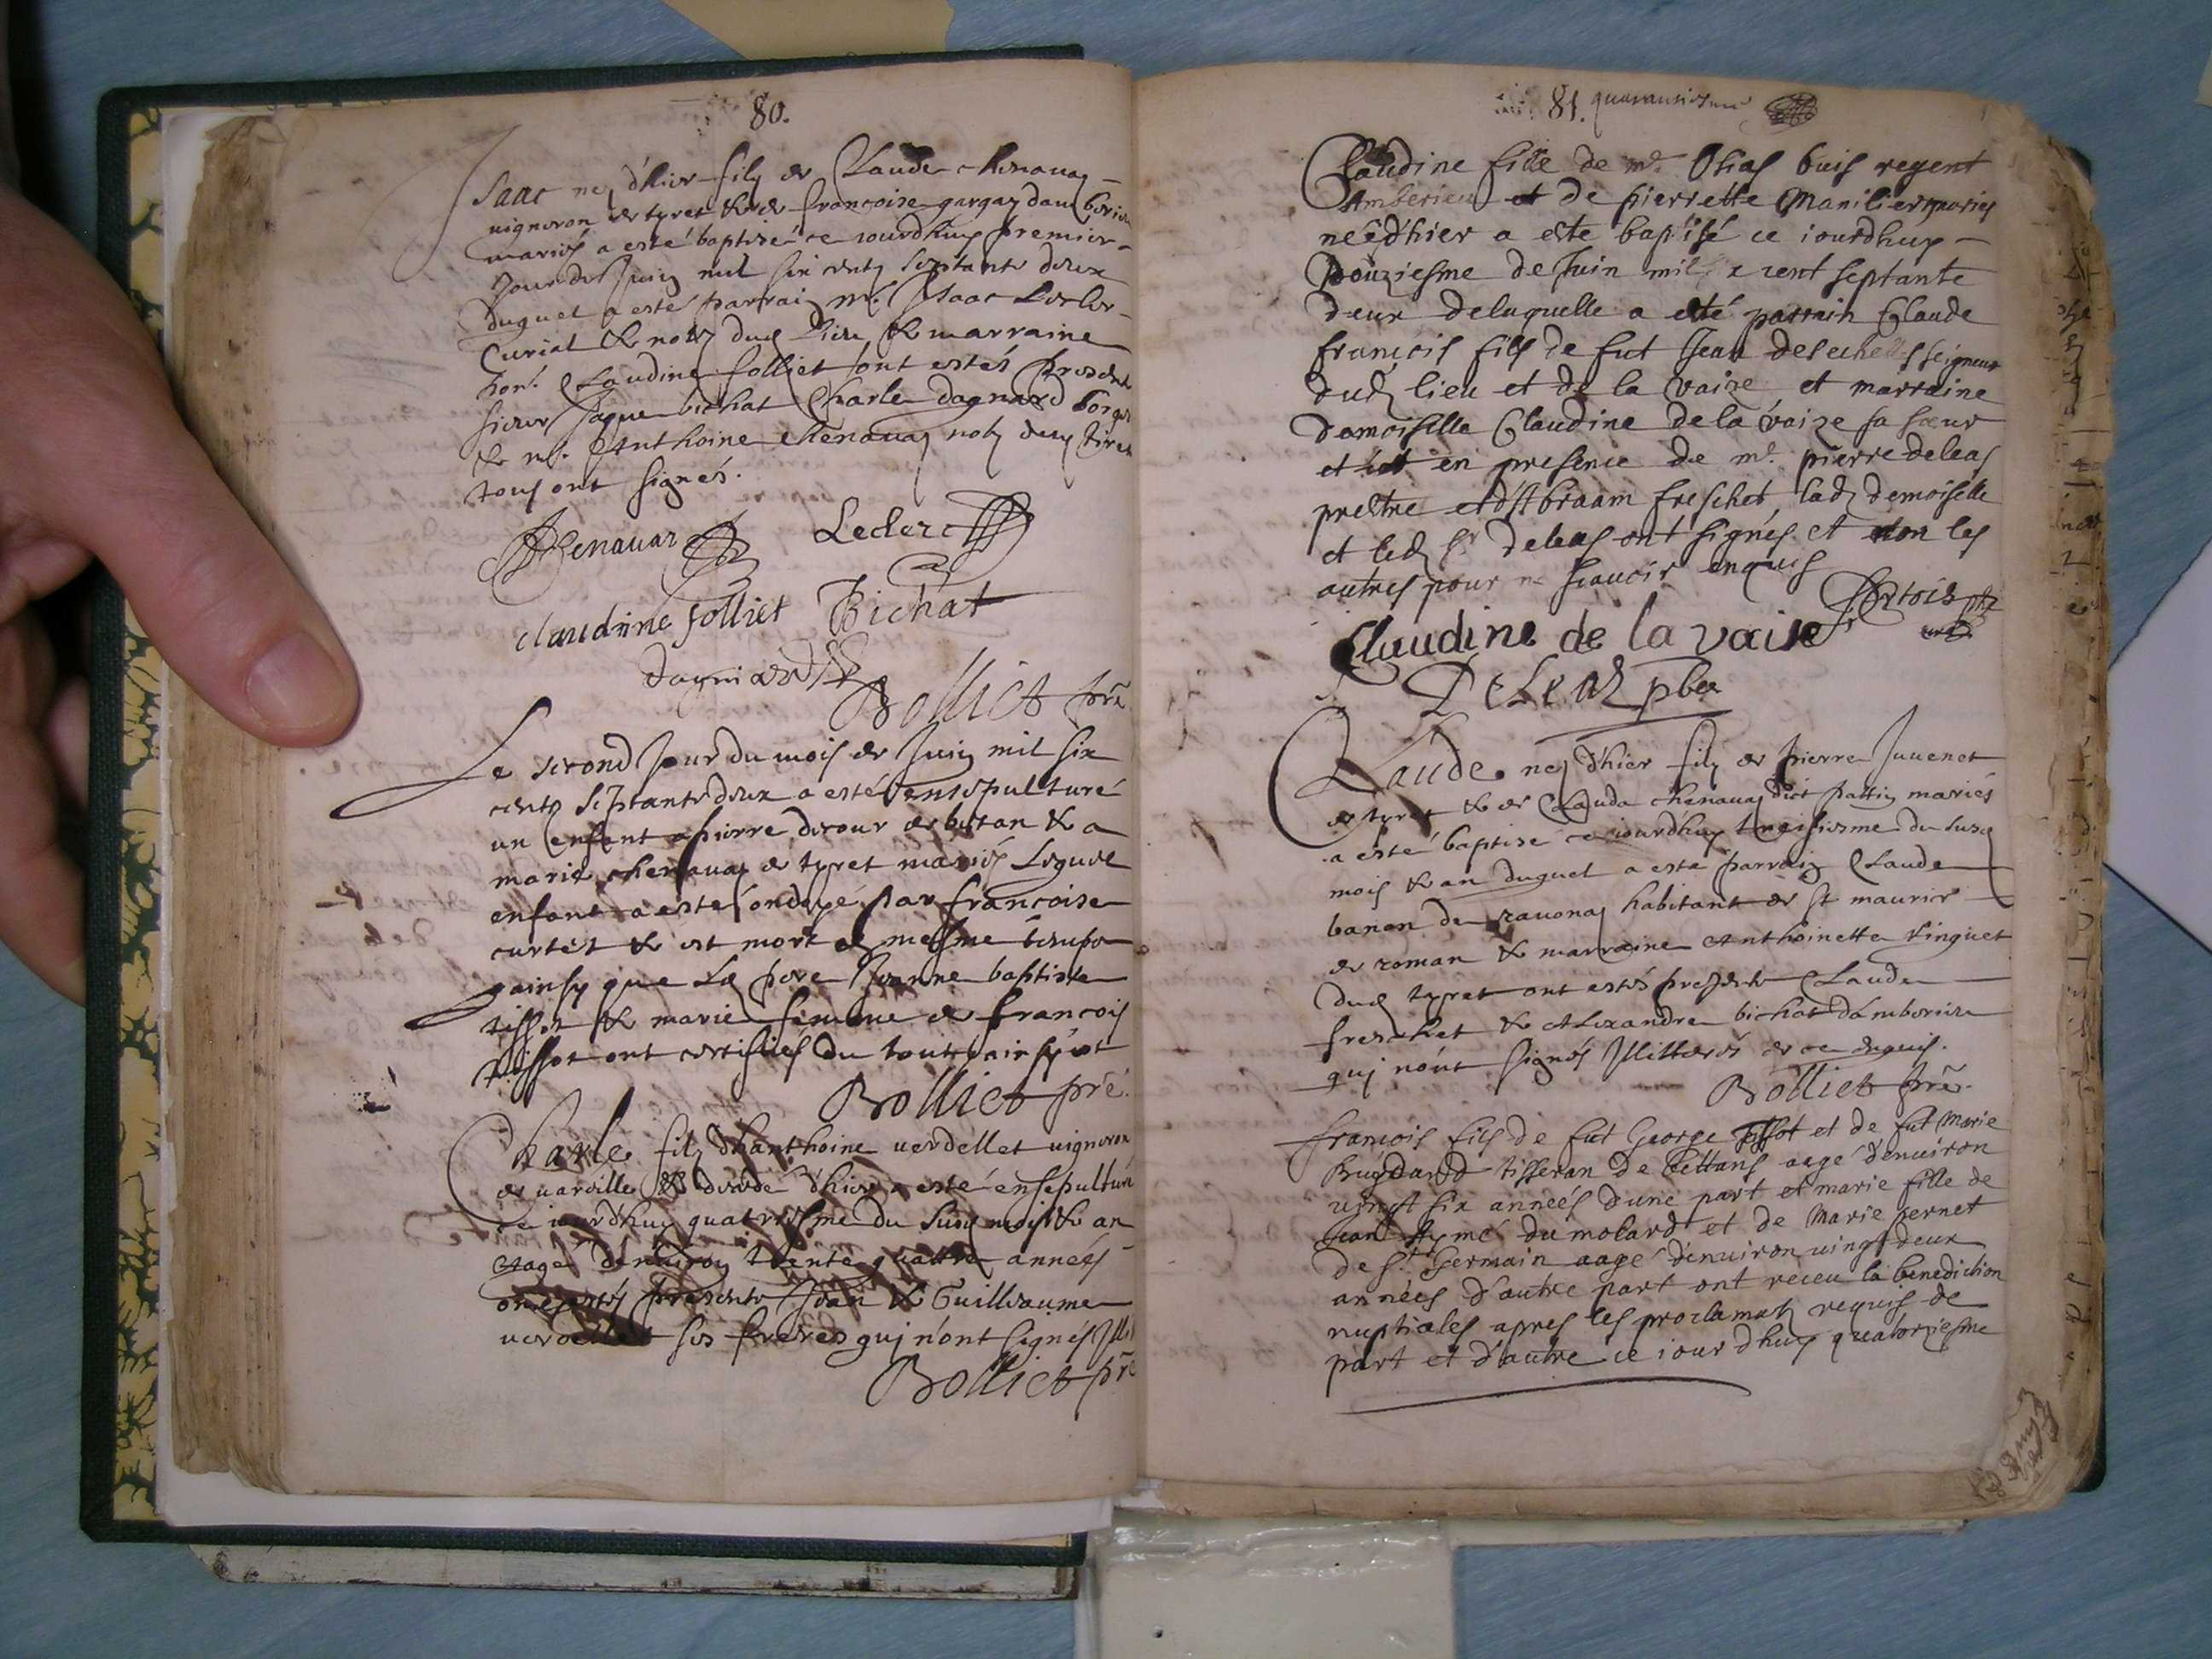 80.
Isaac ney d'hier filz de Claude chenavaz
vigneron de tyret & de francoise gargaz dam berieu
mariés a esté baptisé ce iourdhuy premier
jour de Juin mil six centz septante deux
duquel a esté parrain mr. Isaac Leclerc
Curial & nore dud lieu & marraine
hon. Claudine folliet ont estés presents
sieur Jaque bichat Charle dagnard borge
& mr. Anthoine chenavaz not dud tiret
tous ont signés.
Chenavaz Leclerc
claudinne folliet Bichat
dagniard
Bolliet pre
Le second jour du mois de Juin mil six
centz septante deux a esté ensepulturé
un enfant a pierre decour de bettan & a
marie chenavaz de tyret mariés Lequel
enfant a esté ondoyé par francoise
curtet & est mort en mesme temps
ainsy que Led pere Jeanne baptiste
tissot & marie femme de francois
tissot ont certifiés du tout ainsy est
Bolliet pre.
Charle filz d'hanthoine verdellet vigneron
de vareille décédé d'hier a esté ensepulturé
ce iourdhuy quatriesme du susd mois & an
eagé d'environ trente quattre années
ont estés presents Jean & Guilleaume
verdellet ses freres qui n'ont signés Illi
Bolliet pre
81. quaranteiesme
Claudine fille de mr. Osias buis regent
Amberieu et de pierrette Manilier mariés
neé d'hier a este baptisé ce iourdhuy
Douziesme de Juin mil six cent septante
deux de laquelle a esté parrain Claude
françois fils de fut Jean desechelles seigneur
dud lieu et de la vaize et marraine
damoiselle Claudine de la vaize sa sœur
et en presence de mr. pierre deleas
prestre et d'Abraam freschet lad demoiselle
et led sr deleas ont signés et non les
autres pour ne scavoir enquis
Artois
Claudine de la vaise
DeLeaz pbr
Claude ney d'hier filz de pierre Juvenet
de tyret & de Clauda chenavaz dict pattin mariés
a esté baptisé ce iourdhuy treisiesme du susd
mois & an duquel a esté parrain Claude
banan de ravonaz habitant de st maurice
de roman & marraine Anthoinette vinguet
dud tyret ont estés presents Claude
freschet & Alexandre bichat d'amberieu
qui n'ont signés Illitterés de ce enquis.
Bolliet pre.
françois fils de fut George tissot et de fut Marie
Bugdard tisseran de Bettans aagé d'enuiron
vingt six anneés d'une part et marie fille de
Jean Aymé dumolard et de Marie pernet
de St. Germain aagé d'enuiron vingt deux
annees d'autre part ont receu la benediction
nuptiales apres les proclamatz requis de
part et d'autre ce iourdhuy quatorziesme